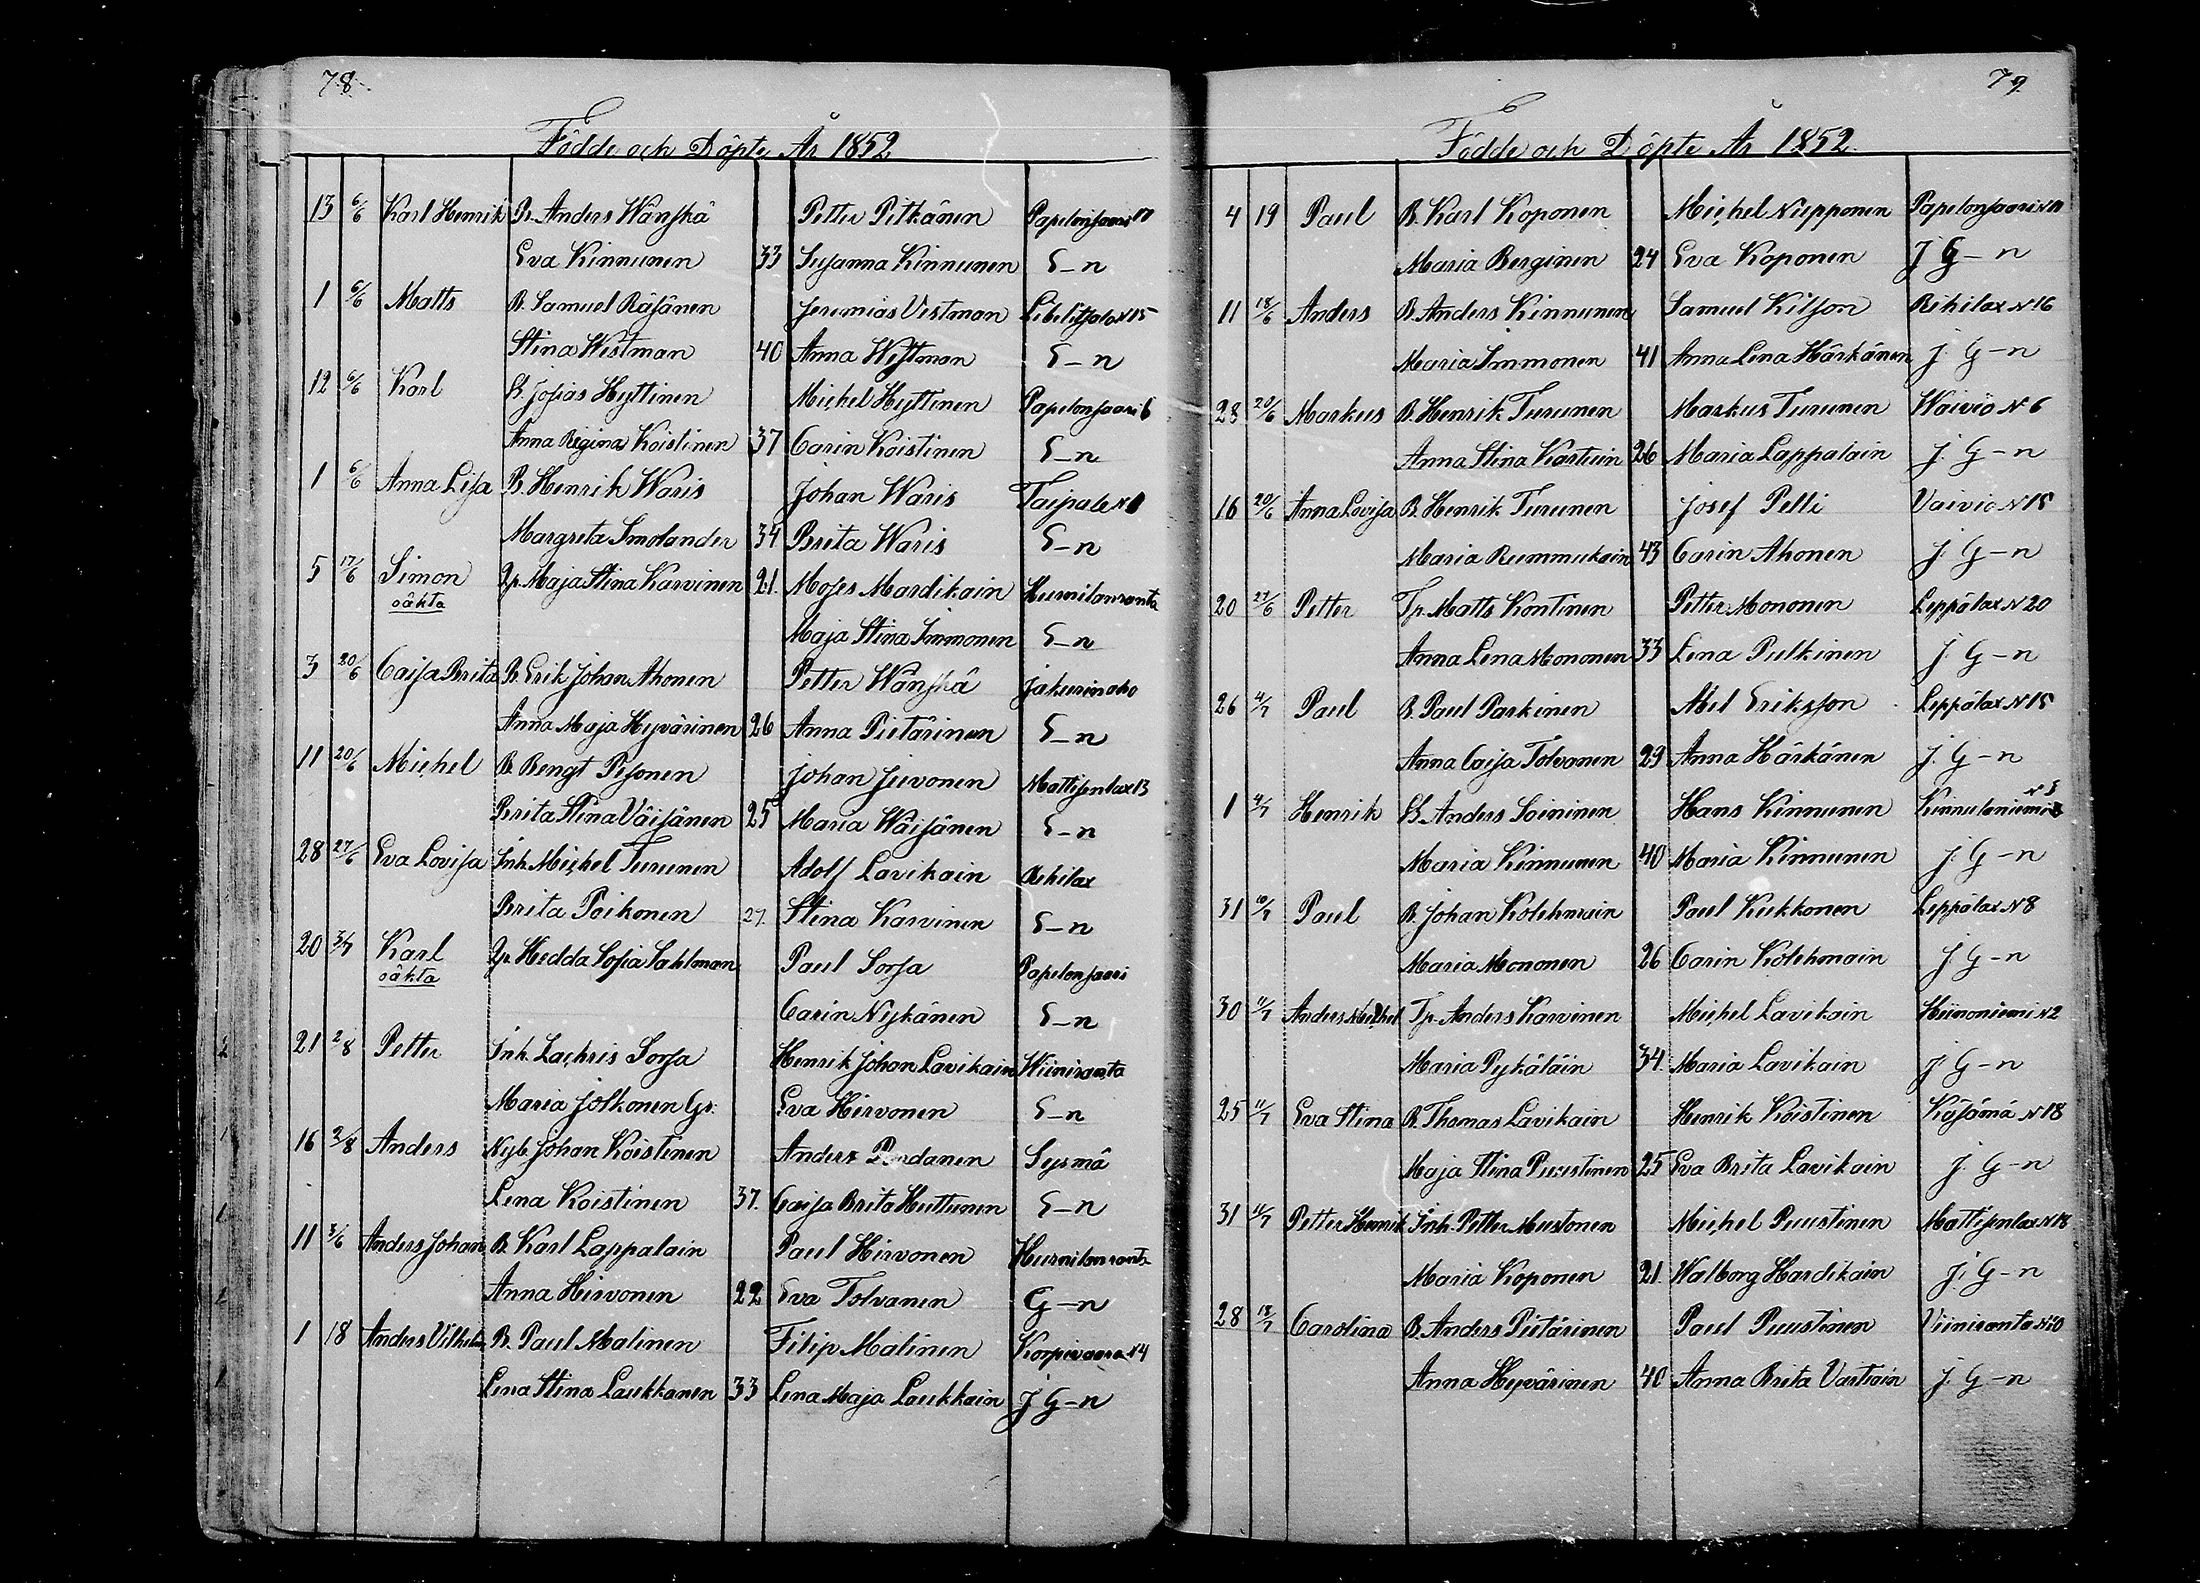 78.
Födde och Döpte År 1852
13 6/6 Karl Henrik B. Anders Wänskä Petter Pitkänen Papelonsaari
Eva Kinnunen 33 Susanna Kinnunen E–n
1 6/6 Matts B. Samuel Räsänen Jeremias Vestman Libelitsalo N 15
Stina Westman 40 Anna Westman E–n
12 6/6 Karl B. Josias Hyttinen Michel Hyttinen Papelonsaari 6
Anna Regina Koistinen 37 Carin Koistinen E–n
1 6/6 Anna Lisa B. Henrik Waris Johan Waris Taipale N
Margreta Smolander 34 Brita Waris E–n
5 17/6 Simon Maja Stina Karvinen 21. Moses Mardikain Hurnilanranta
oäkta Maja Stina Immonen E–n
3 20/6 Caisa Brita B. Erik Johan Ahonen Petter Wänskä Jakurinaho
Anna Maja Hyvärinen 26 Anna Pietärinen E–n
11 20/6 Michel B. Bengt Pesonen Johan Juvonen Mattisenlax 13
Brita Stina Väisänen 25 Maria Wäisänen E–n
28 27/6 Eva Lovisa Inh. Michel Turunen Adolf Lavikain Rihilax
Brita Poikonen 27. Stina Karvinen E–n
20 3/7 Karl Hedda Sofia Sahlman Paul Sorsa Papelonsaari
oäkta Carin Nykänen E–n
21 2/8 Petter Inh. Zachris Sorsa Henrik Johan Lavikain Wiiniranta
Maria Jolkonen Gr. Eva Hirvonen E–n
16 2/8 Anders Nyb. Johan Koistinen Anders Pardanen Sysmä
Lena Koistinen 37. Caisa Brita Huttunen E–n
11 3/6 Anders Johan B. Karl Lappalain Paul Hirvonen Hurnilanranta
Anna Hirvonen 22 Eva Tolvanen G–n
1 18 Anders Vilhelm B. Paul Malinen Filip Malinen Korpivaara N4
Lena Stina Laukkanen 33 Lena Maja Laukkain J G–n
79
Födde och Döpte År 1852.
4 19 Paul B. Karl Koponen Michel Niepponen Papelonsaari N
Maria Berginen 24 Eva Koponen J G–n
11 18/6 Anders B. Anders Kinnunen Samuel Kilson Rihilax N 16
Maria Immonen 41 Anna Lena Härkänen J. G–n
28 20/6 Markus B. Henrik Turunen Markus Turunen Waivio N 6
Anna Stina Kartuin 26 Maria Lappalain J. G–n
16 20/6 Anna Lovisa B. Henrik Turunen Josef Pelli Vaivio N 15
Maria Rummukain 43 Carin Ahonen J. G–n
20 27/6 Petter Tp. Matts Kontinen Petter Mononen Leppälax N 20
Anna Lena Mononen 33 Lena Pulkinen J. G–n
26 4/7 Paul B. Paul Parkinen Abel Eriksson Leppälax N 15
Anna Caisa Tolvanen 29 Anna Härkänen J. G–n
1 4/7 Henrik B. Anders Soininen Hans Kinnunen Kinnulaniemi N 3
Maria Kinnunen 40 Maria Kinnunen J. G–n
31 10/7 Paul B. Johan Kolehmain Paul Kukkonen Leppälax N 8
Maria Mononen 26 Carin Kolehmain J. G–n
30 11/7 Anders Michel Tp. Anders Karvinen Michel Lavikain Hiinoniemi N 2
Maria Pykäläin 34. Maria Lavikain J. G–n
25 11/7 Eva Stina B. Thomas Lavikain Henrik Koistinen Käsämä N 18
Maja Stina Puustinen 25 Eva Brita Lavikain J. G–n
31 11/7 Petter Henrik Inh. Petter Mustonen Michel Puustinen Mattisenlax N 18
Maria Koponen 21. Walborg Hardikain J. G–n
28 18/7 Carolina B. Anders Pietärinen Paul Puustinen Viiniranta N 20
Anna Hyvärinen 40 Anna Brita Vartiain J. G–n